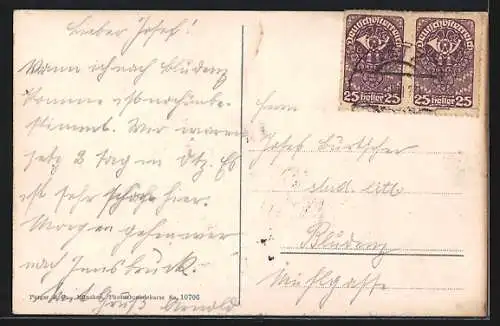 Lieber Josef!
Wann ich nach Bludenz
komme ist noch unbe-
stimmt. Wir waren
jetz 2 Tag im Ötz. Es
ist sehr schön hier.
Morgen gehen wir
nach Innsbruck.
Gruß Arnold
Deutschösterreich
25 Heller 25
Deutschösterreich
25 Heller 25
Herrn
Josef
stud.
Bludenz
Mühlgasse
München, No. 10706